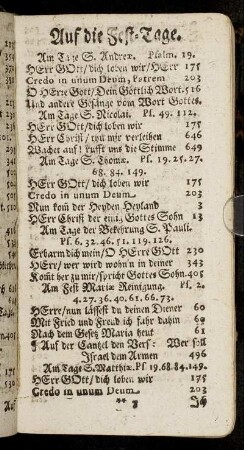 Auf die Fest-Tage.
Am Tage S. Andreæ. Psalm. 19.
HErr GOtt/dich loben wir/HErr 175
Credo in unum Deum, Patrem 203
O HErre Gott/Dein Göttlich Wort. 516
Und andere Gesänge vom Wort Gottes.
Am Tage S. Nicolai. Ps. 49. 112.
HErr GOtt/dich loben wir 175
HErr Christ/ thu mir verleihen 646
Wachet auf! rufft uns die Stimme 649
Am Tage S. Thomæ. Ps. 19. 25. 27.
68. 84. 149.
HErr GOtt/ dich loben wir 175
Credo in unum Deum. 203
Nun kom̃ der Heyden Heyland 3
HErr Christ der einig Gottes Sohn 13
Am Tage der Bekehrung S. Pauli.
Ps. 6. 32. 46. 51. 119. 126.
Erbarm dich mein/ O HErre Gott 230
HErr/ wer wird wohn'n in deiner 343
Kom̃t her zu mir/spricht Gottes Sohn. 405
Am Fest Mariæ Reinigung. Ps. 2.
4. 27. 36. 40. 61. 66. 73.
HErr/ nun lässest du deinen Diener 60
Mit Fried und Freud ich fahr dahin 60
Nach dem Gesetz Maria heut 61
¶ Auf der Cantzel den Vers: Wer soll
Israel dem Armen 496
Am Tage S. Matthiæ. Ps. 19. 68. 84. 149.
HErr GOtt/ dich loben wir 175
Credo in unum Deum 203
** 3 Ich